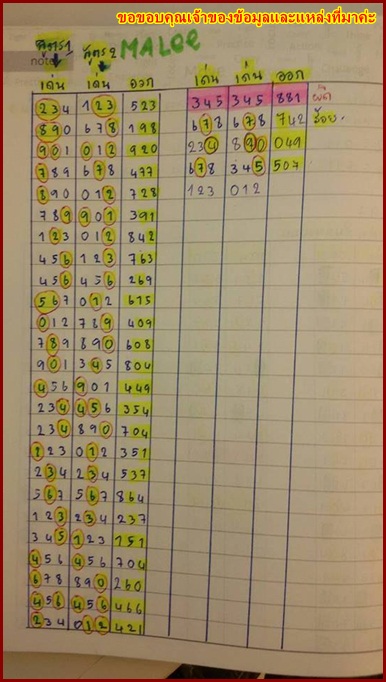 ขอขอบคุณเจ้าของข้อมูลและแหล่งที่มาค่ะ
สูตร1 สูตร2 MALee
note
เด่น เด่น ออก เด่น เด่น ออก
234 123 523 345 345 881 ผิด
890 678 198 678 678 742
901 012 920 234 890 049
789 678 477 678 345 507
890 012 728 123 012
789 901 391
123 012 842
456 123 763
456 456 269
567 012 615
012 789 409
789 890 608
901 345 804
456 901 449
234 456 354
234 890 704
123 012 351
234 234 537
567 567 864
123 234 237
345 123 151
456 456 704
678 890 260
456 456 466
234 012 421